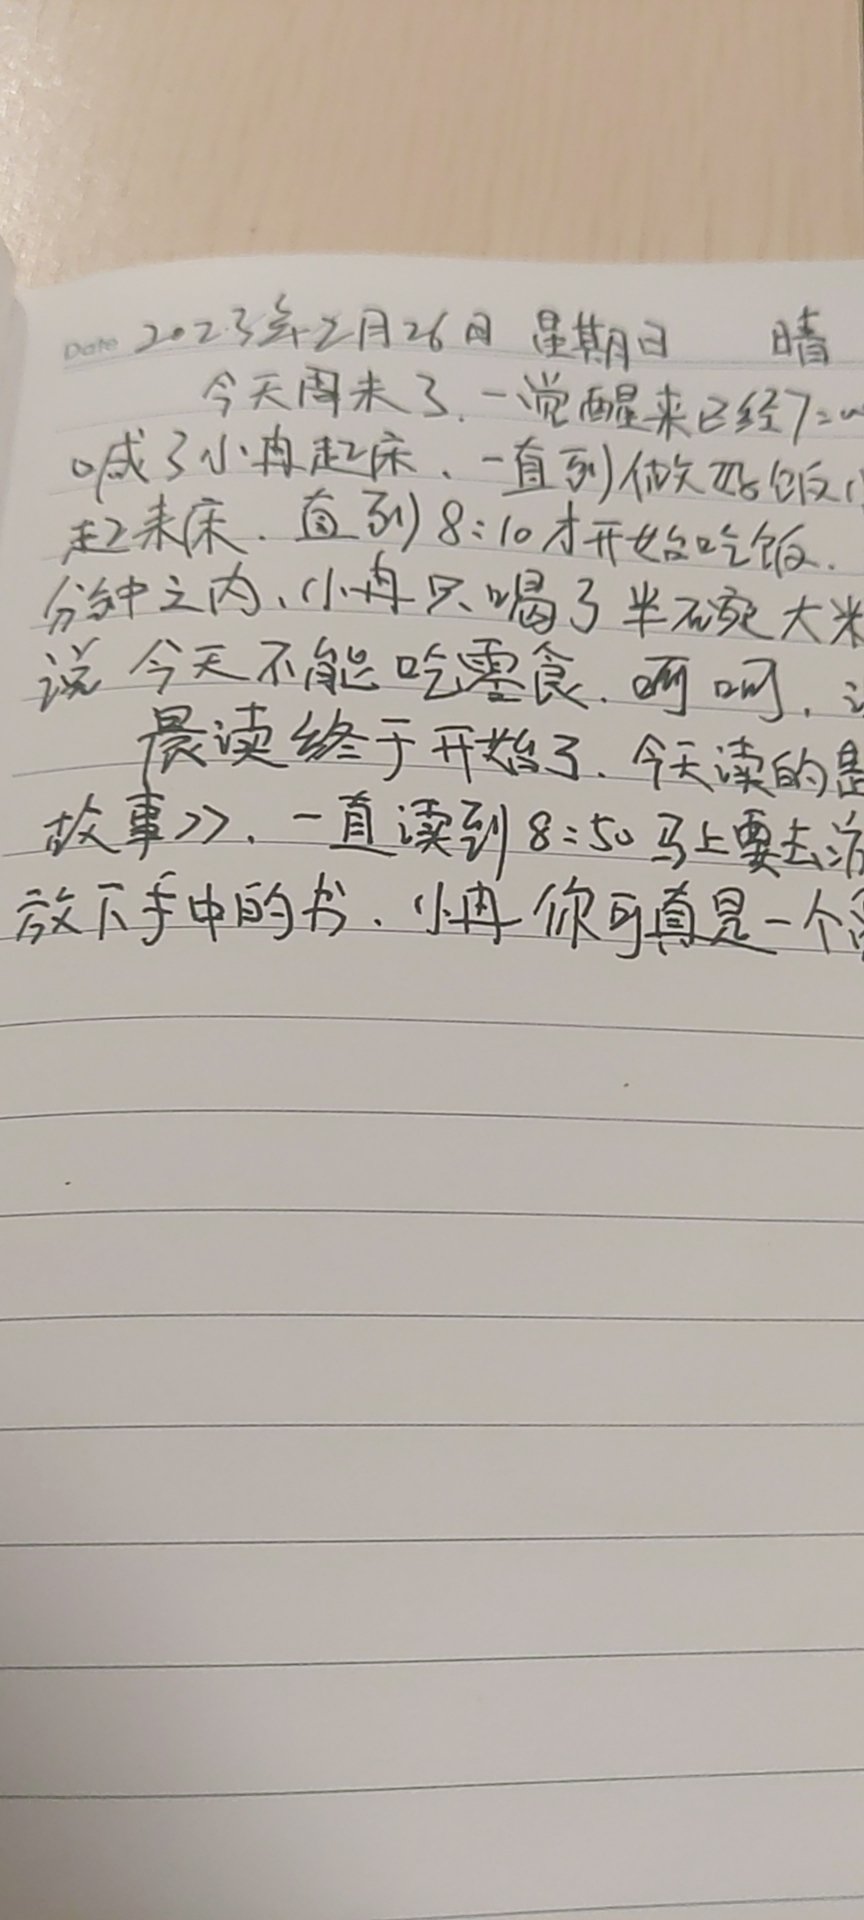 Date 2023年2月26日 星期日 晴
今天周末了.一觉醒来已经7:
喊了小冉起床、一直到做好饭小
起来床.直到8:10才开始吃饭.
分钟之内、小冉只喝了半碗大米
说今天不能吃零食.呵呵.
晨读终于开始了.今天读的是
故事》.一直读到8:50马上要去
放下手中的书.小冉你可真是一个